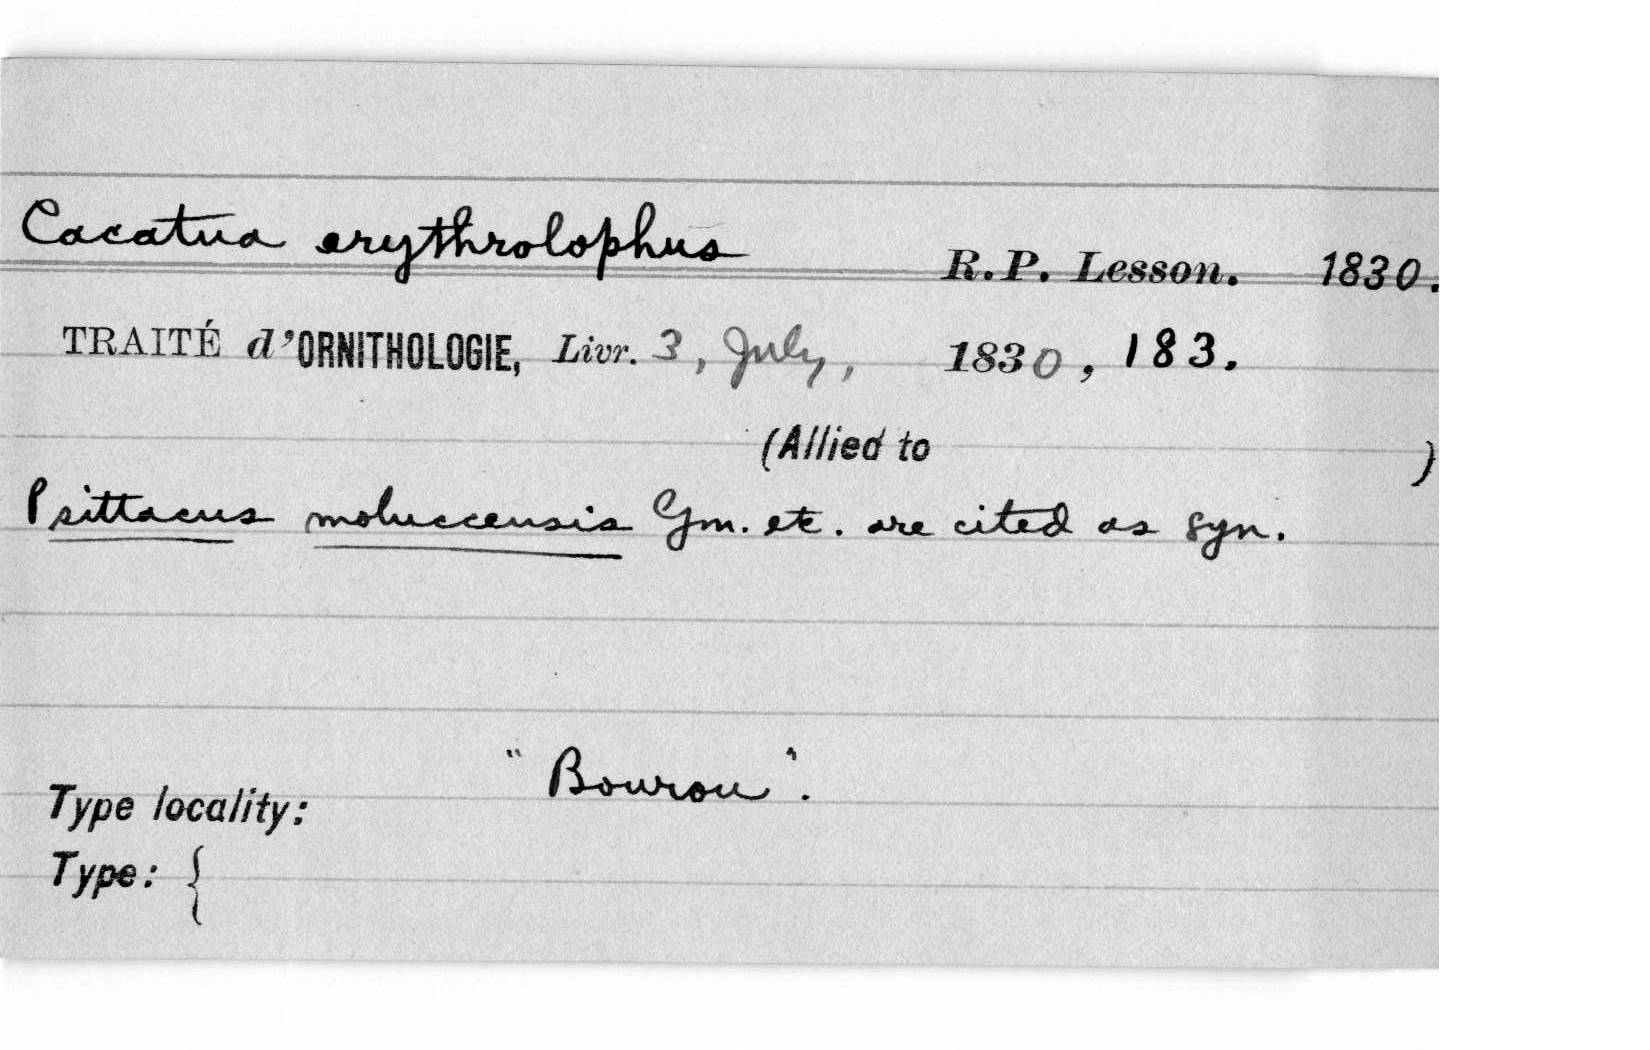 Cacatua erythrolophus R.P. Lesson. 1830.
TRAITÉ d'ORNITHOLOGIE, Livr. 3, July, 1830, 183.
(Allied to )
Psittacus moluccensis Gm. etc. are cited as syn.
Type locality: "Bourou".
Type: {